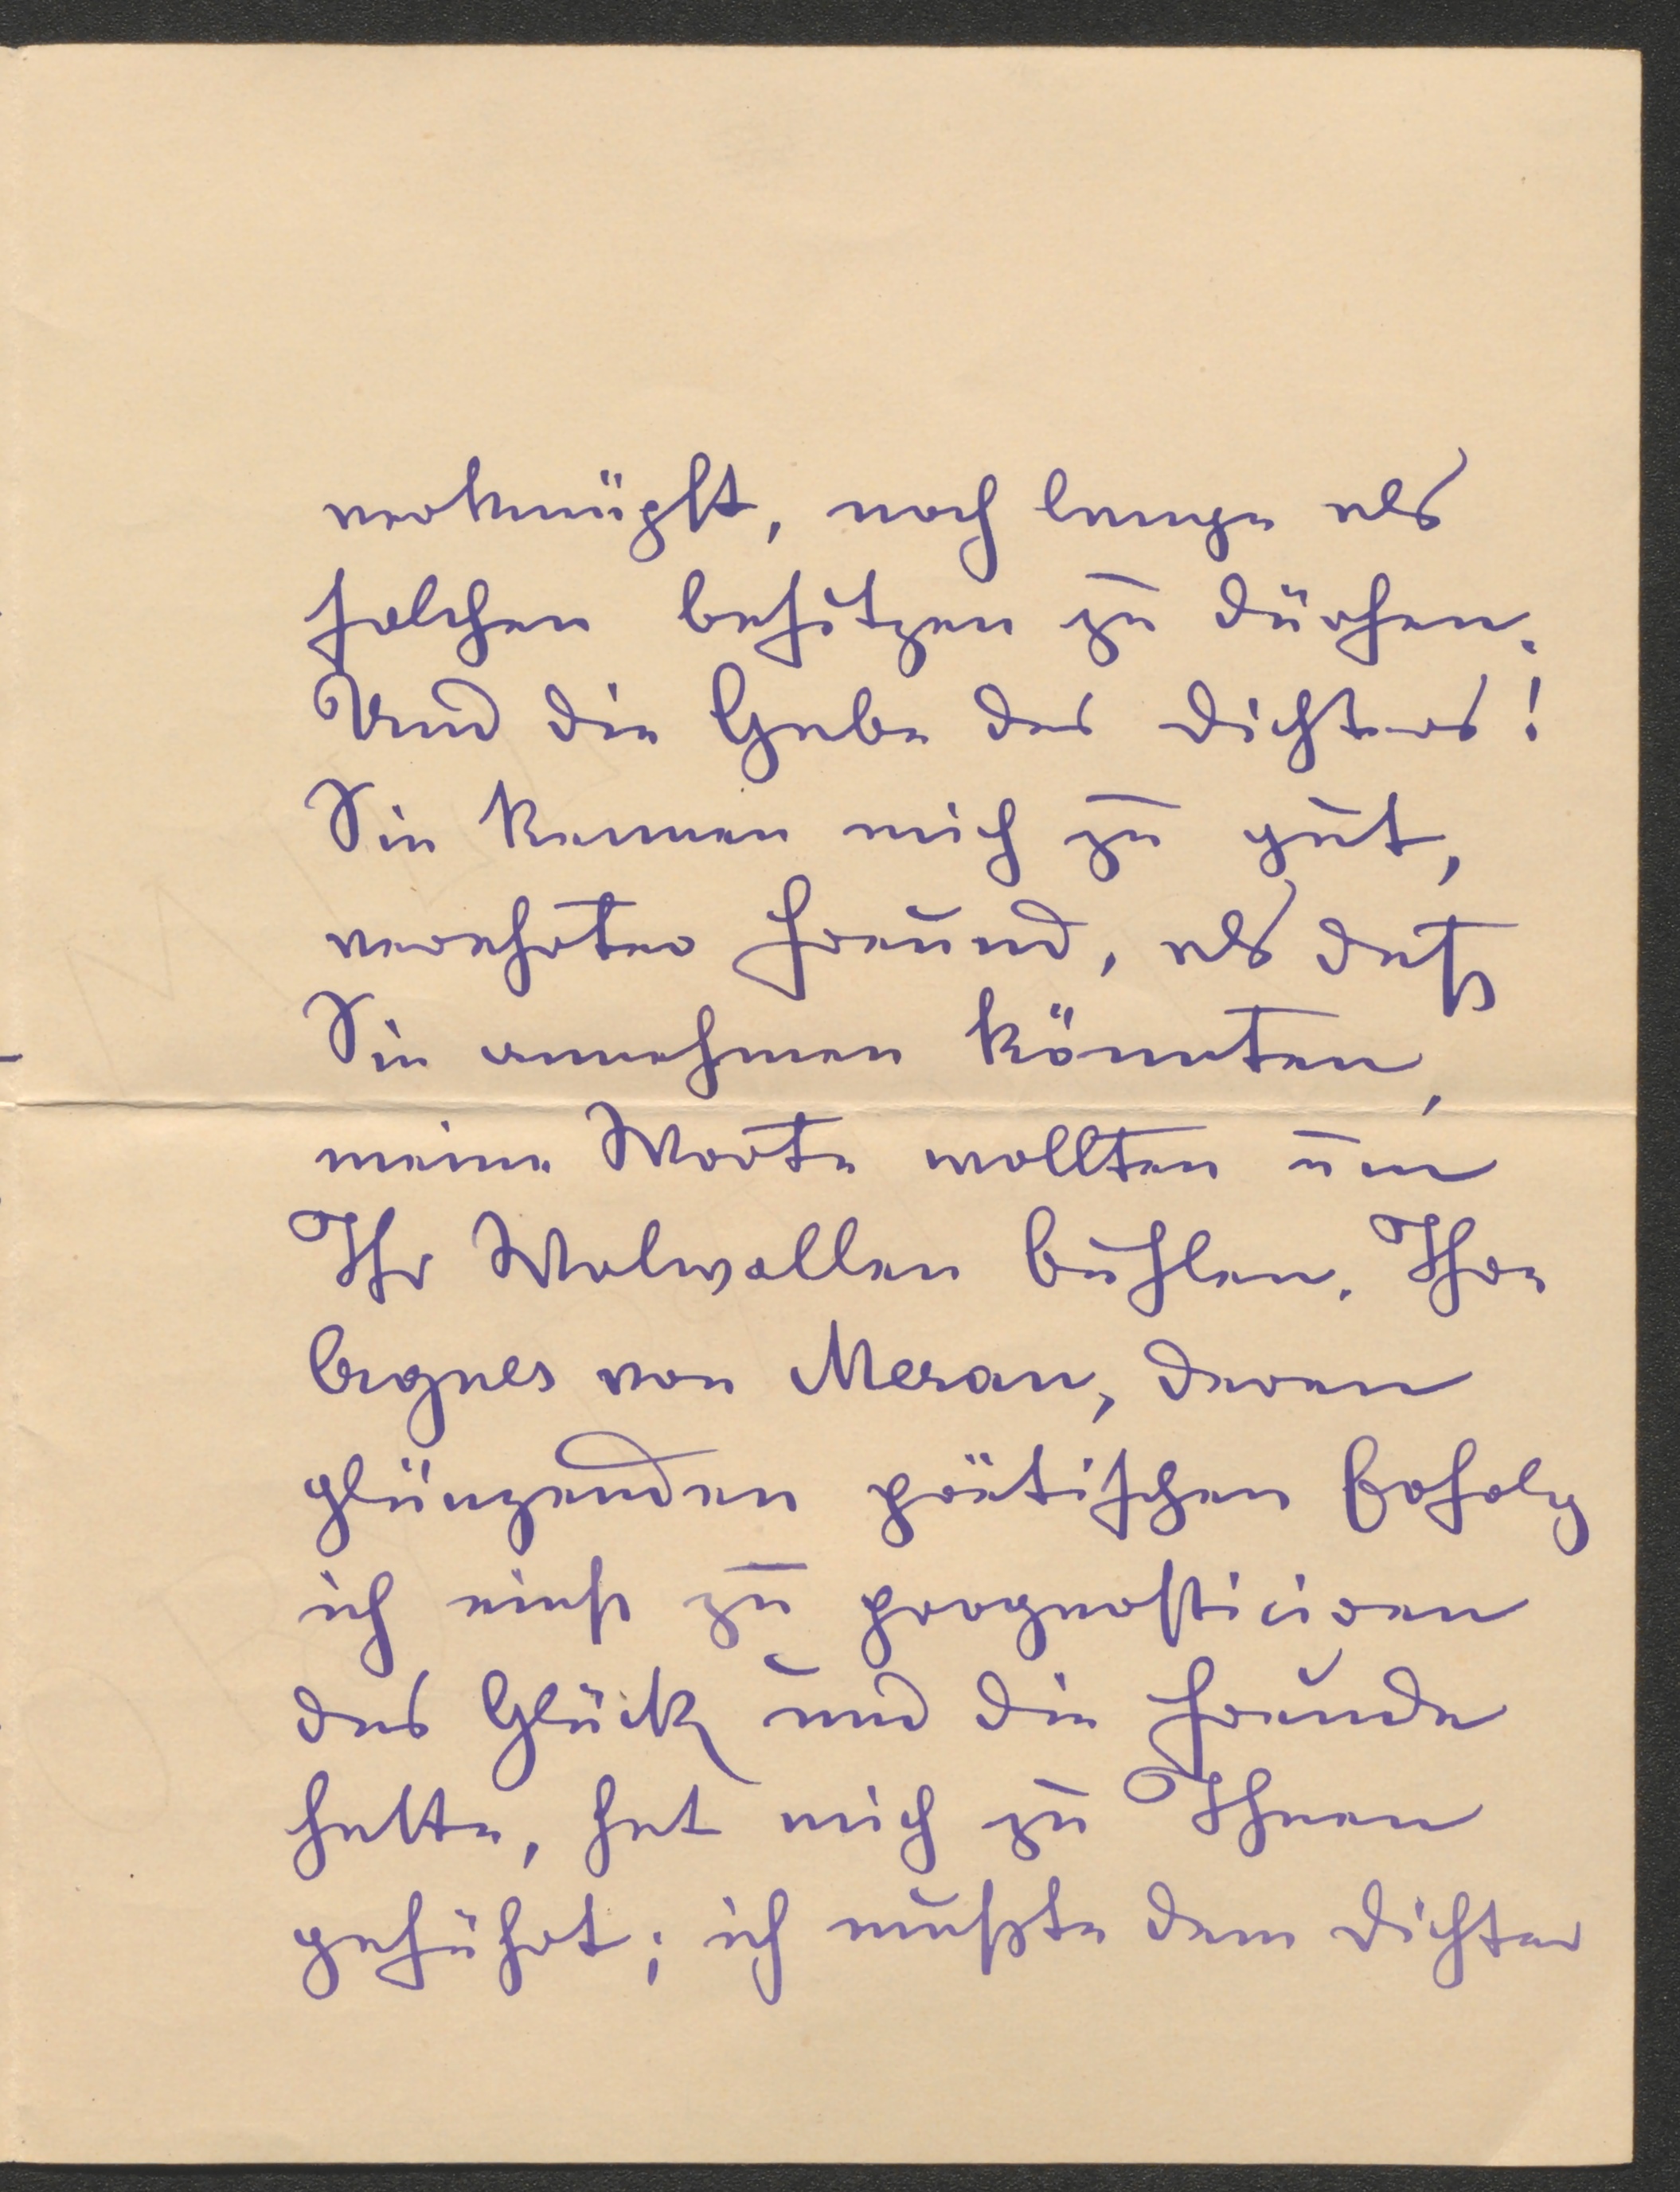 verknüpft, noch lange als
solchen besitzen zu dürfen.
Und die Gabe des Dichters!
Sie kennen mich zu gut,
verehrter Freund, als daß
Sie annehmen könnten,
meine Worte wollten um
Ihr Wolwollen buhlen. Ihre
Agnes von Meran, deren
glänzenden poëtischen Erfolg
ich einst zu prognosticiren
das Glück und die Freude
hatte, hat mich zu Ihnen
geführt; ich mußte dem Dichter